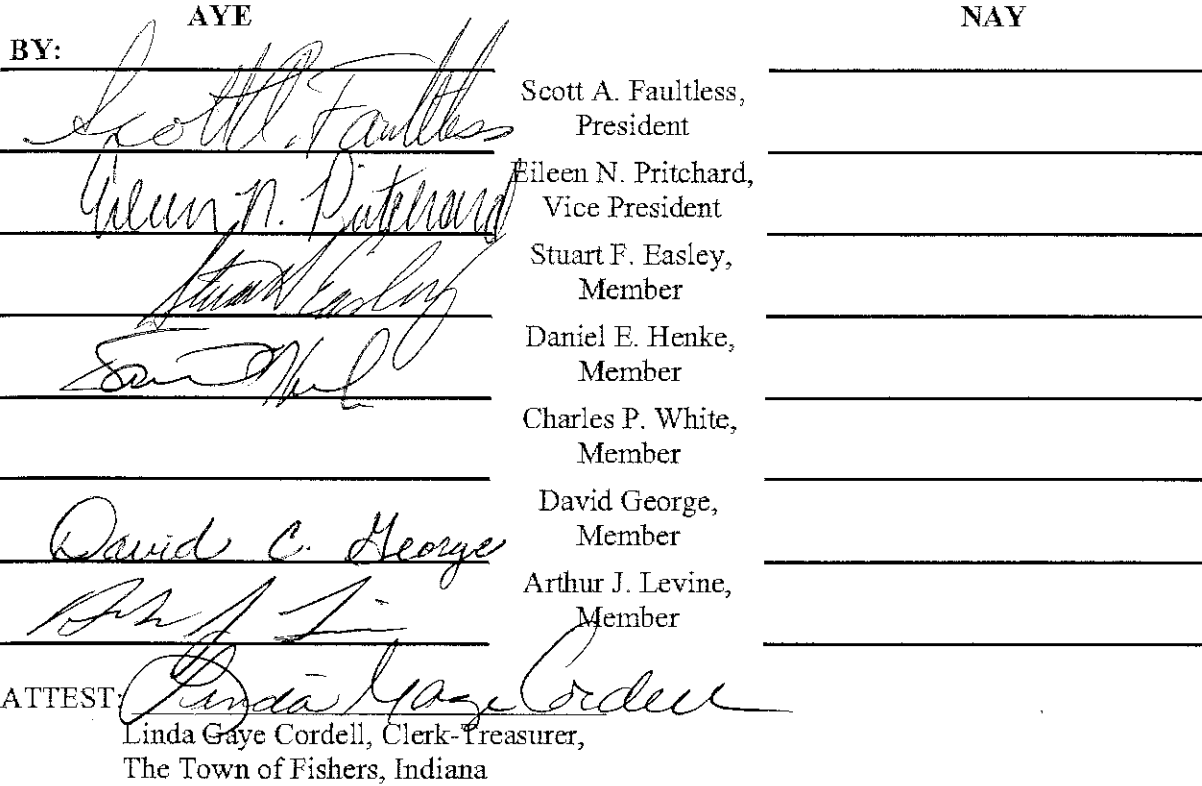 AYE NAY
BY:
Scott A. Faultless
Scott A. Faultless,
President
Eileen N. Pritchard
Eileen N. Pritchard,
Vice President
Stuart Easley
Stuart F. Easley,
Member
Daniel E. Henke,
Member
Charles P. White,
Member
David C. George
David George,
Member
Arthur J. Levine,
Member
ATTEST: Linda Gaye Cordell
Linda Gaye Cordell, Clerk-Treasurer,
The Town of Fishers, Indiana